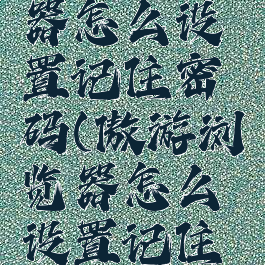 器怎么设
置记住密
码(傲游浏
览器怎么
设置记住